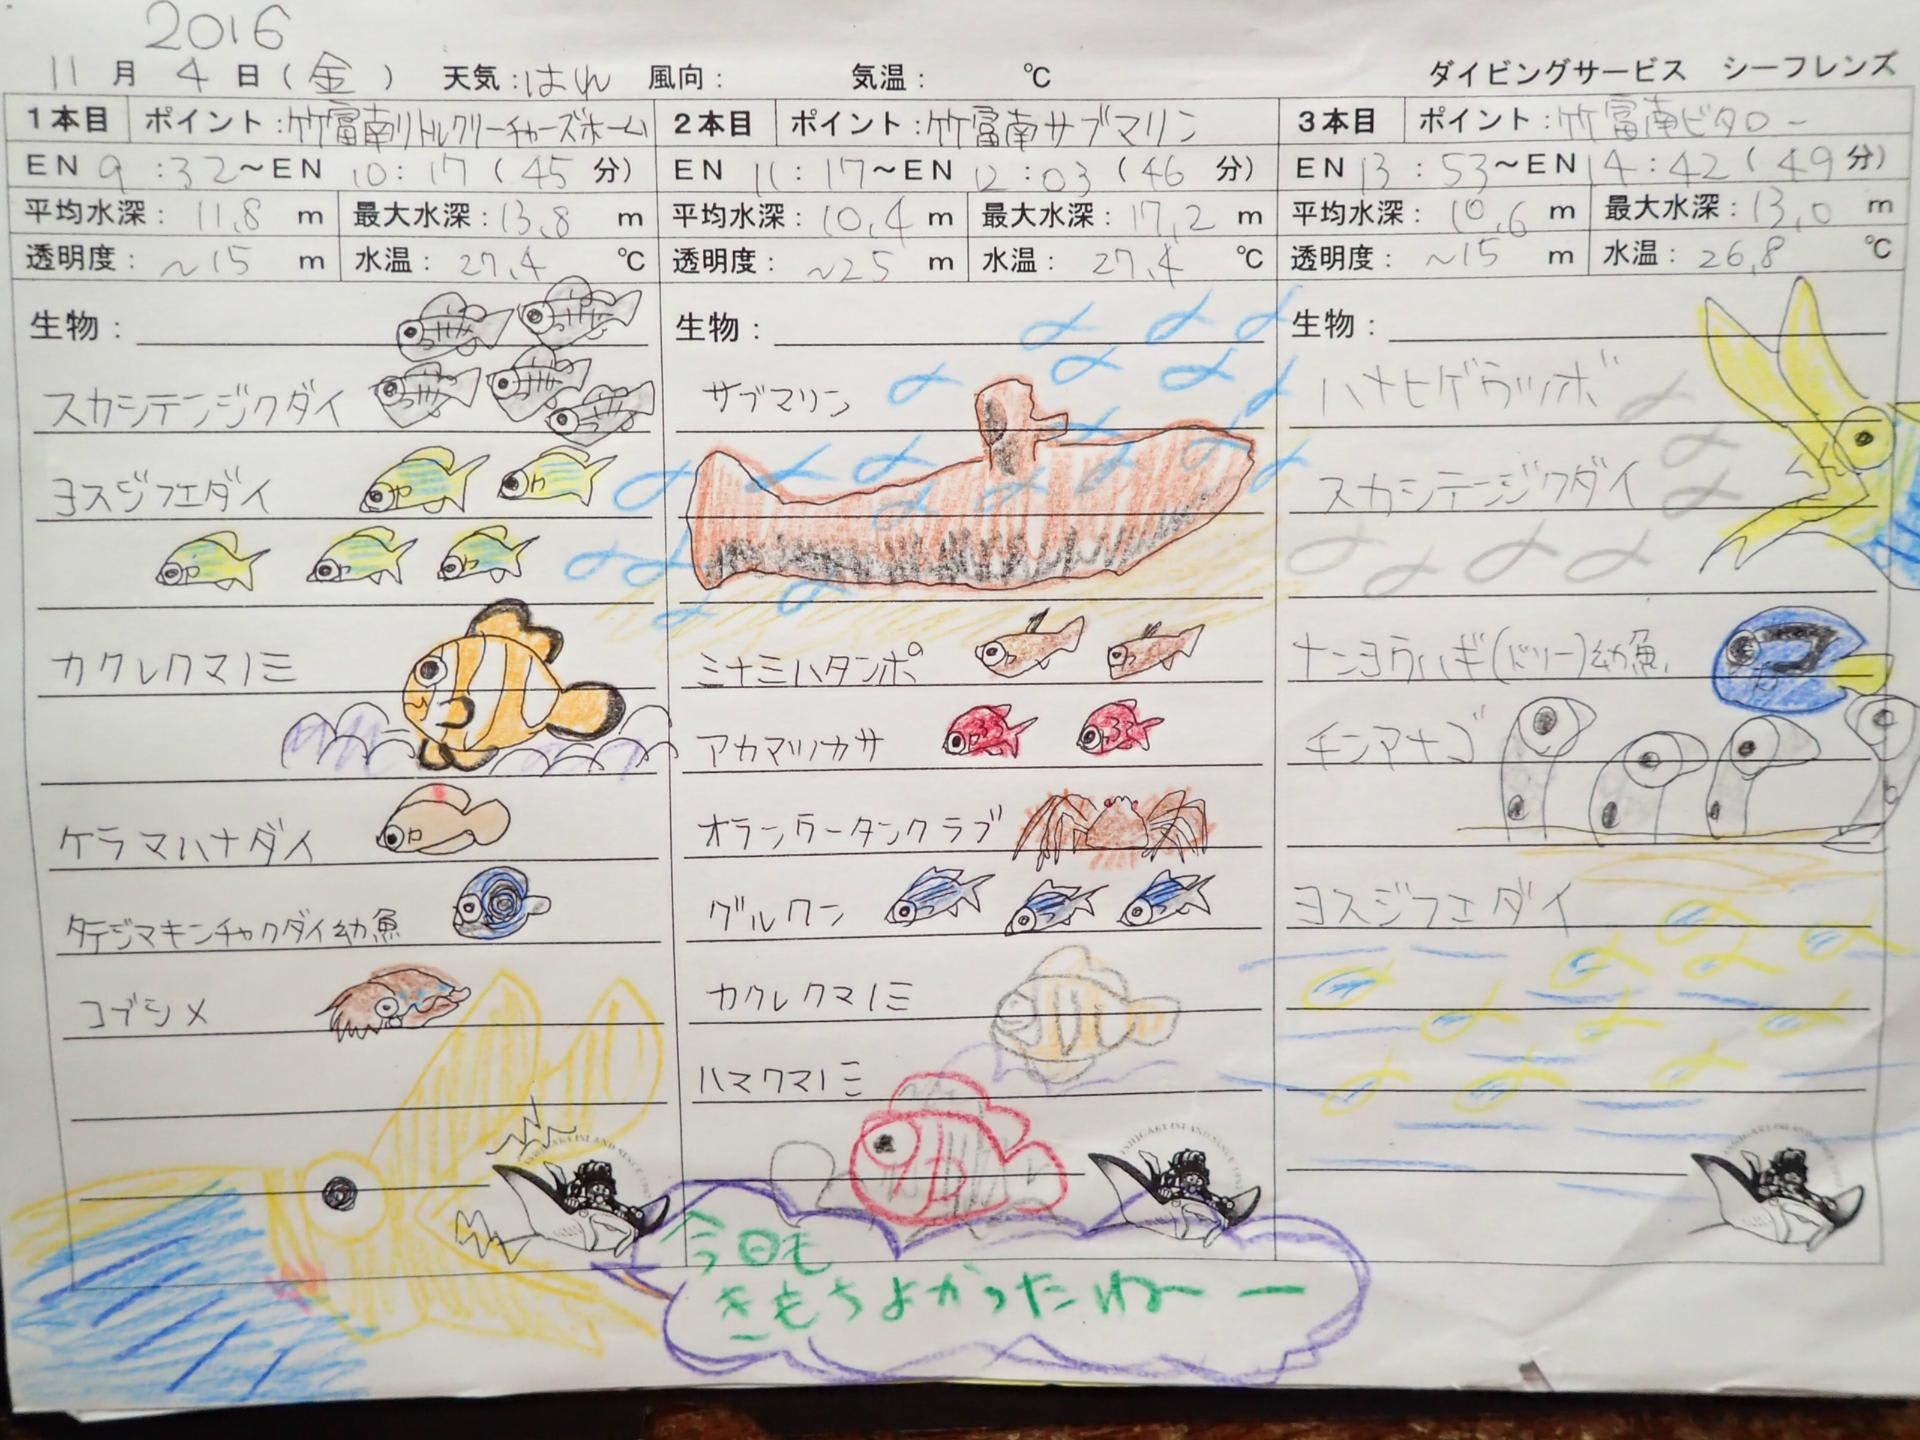 2016
11月 4日(金) 天気:はれ 風向: 気温: ℃ ダイビングサービス シーフレンズ
1本目 ポイント:竹富南リトルクリーチャーズホーム
EN 9:32~EN 10:17(45分)
平均水深:11.8m 最大水深:13.8m
透明度:~15m 水温:27.4℃
生物:
スカシテンジクダイ
ヨスジフエダイ
カクレクマノミ
ケラマハナダイ
タテジマキンチャクダイ幼魚
コブシメ
2本目 ポイント:竹富南サブマリン
EN 11:17~EN 12:03(46分)
平均水深:10.4m 最大水深:17.2m
透明度:~25m 水温:27.4℃
生物:
サブマリン
ミナミハタンポ
アカマツカサ
オランウータンクラブ
グルクン
カクレクマノミ
ハマクマノミ
3本目 ポイント:竹富南ビタロー
EN 13:53~EN 14:42(49分)
平均水深:10.6m 最大水深:13.0m
透明度:~15m 水温:26.8℃
生物:
ハナヒゲウツボ
スカシテンジクダイ
ナンヨウハギ(ドリー)幼魚
チンアナゴ
ヨスジフエダイ
今日も
きもちよかったねーー